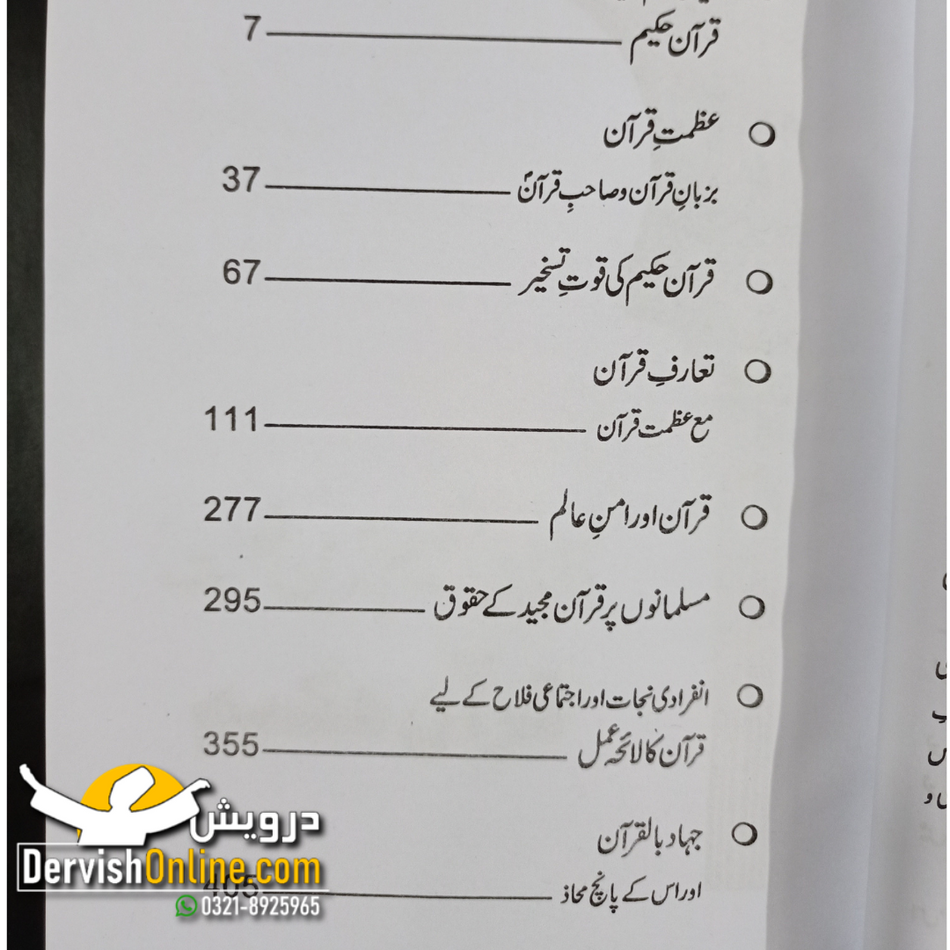 قرآن حکیم 7
عظمتِ قرآن
بزبانِ قرآن و صاحبِ قرآنؐ 37
قرآن حکیم کی قوتِ تسخیر 67
تعارفِ قرآن
مع عظمت قرآن 111
قرآن اور امنِ عالم 277
مسلمانوں پر قرآن مجید کے حقوق 295
انفرادی نجات اور اجتماعی فلاح کے لیے
قرآن کا لائحہ عمل 355
جہاد بالقرآن
اور اس کے پانچ محاذ 405
درویش
DervishOnline.com
0321-8925965